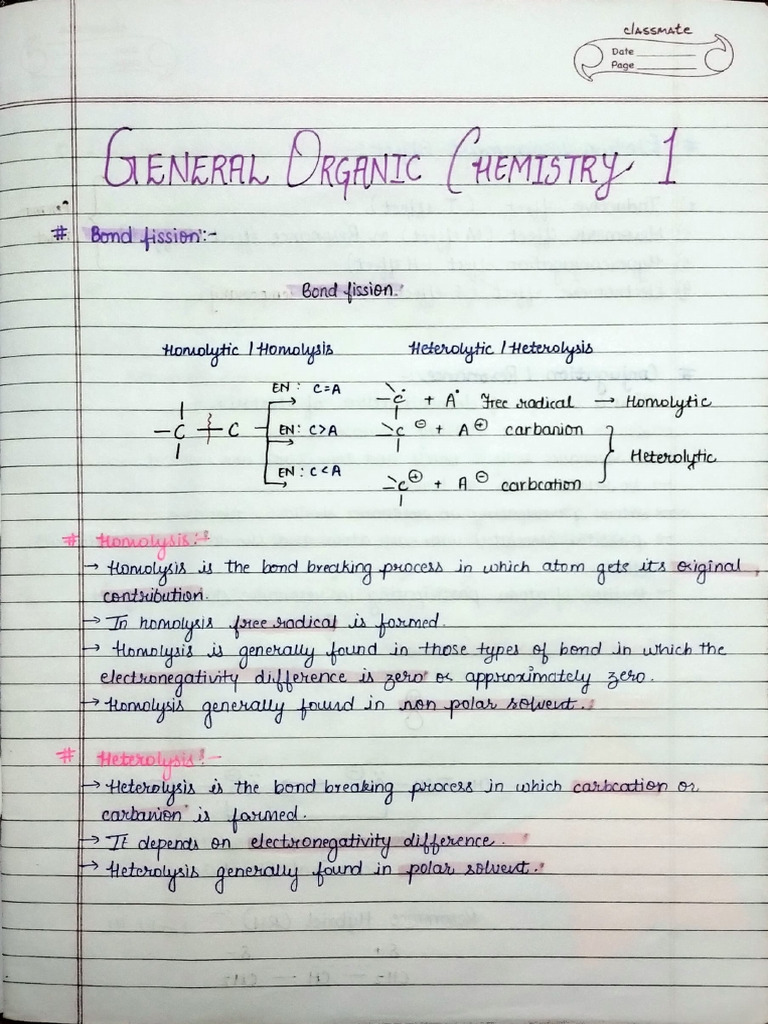 classmate
Date
Page
GENERAL ORGANIC CHEMISTRY 1
# Bond fission:-
Bond fission.
Homolytic / Homolysis Heterolytic / Heterolysis
EN: C=A
–C–C
–C• + A• Free radical → Homolytic
EN: C>A
–C⊖ + A⊕ carbanion
EN: C<A
–C⊕ + A⊖ carbcation
Heterolytic
# Homolysis:-
→ Homolysis is the bond breaking process in which atom gets its original
contribution.
→ In homolysis free radical is formed.
→ Homolysis is generally found in those types of bond in which the
electronegativity difference is zero or approximately zero.
→ Homolysis generally found in non polar solvent.
# Heterolysis:-
→ Heterolysis is the bond breaking process in which carbcation or
carbanion is formed.
→ It depends on electronegativity difference.
→ Heterolysis generally found in polar solvent.